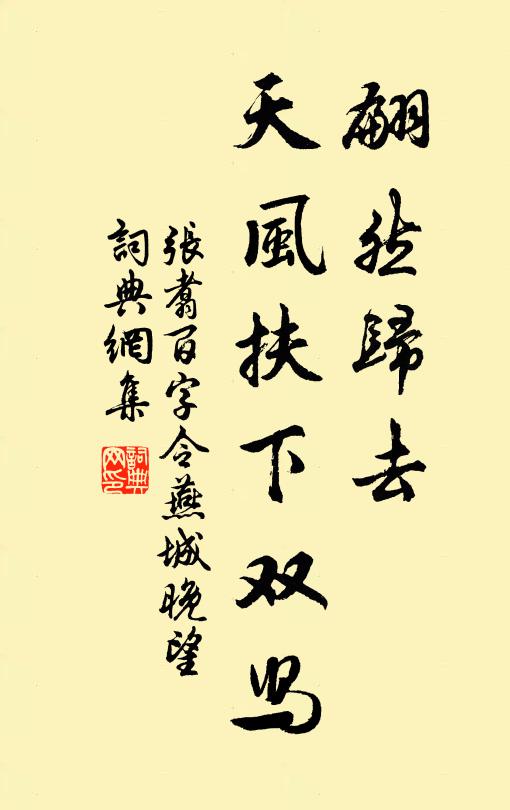 翩然歸去
天風扶下双舄
張翥百字令蕪城晚望
詞典網集
詞典
网印